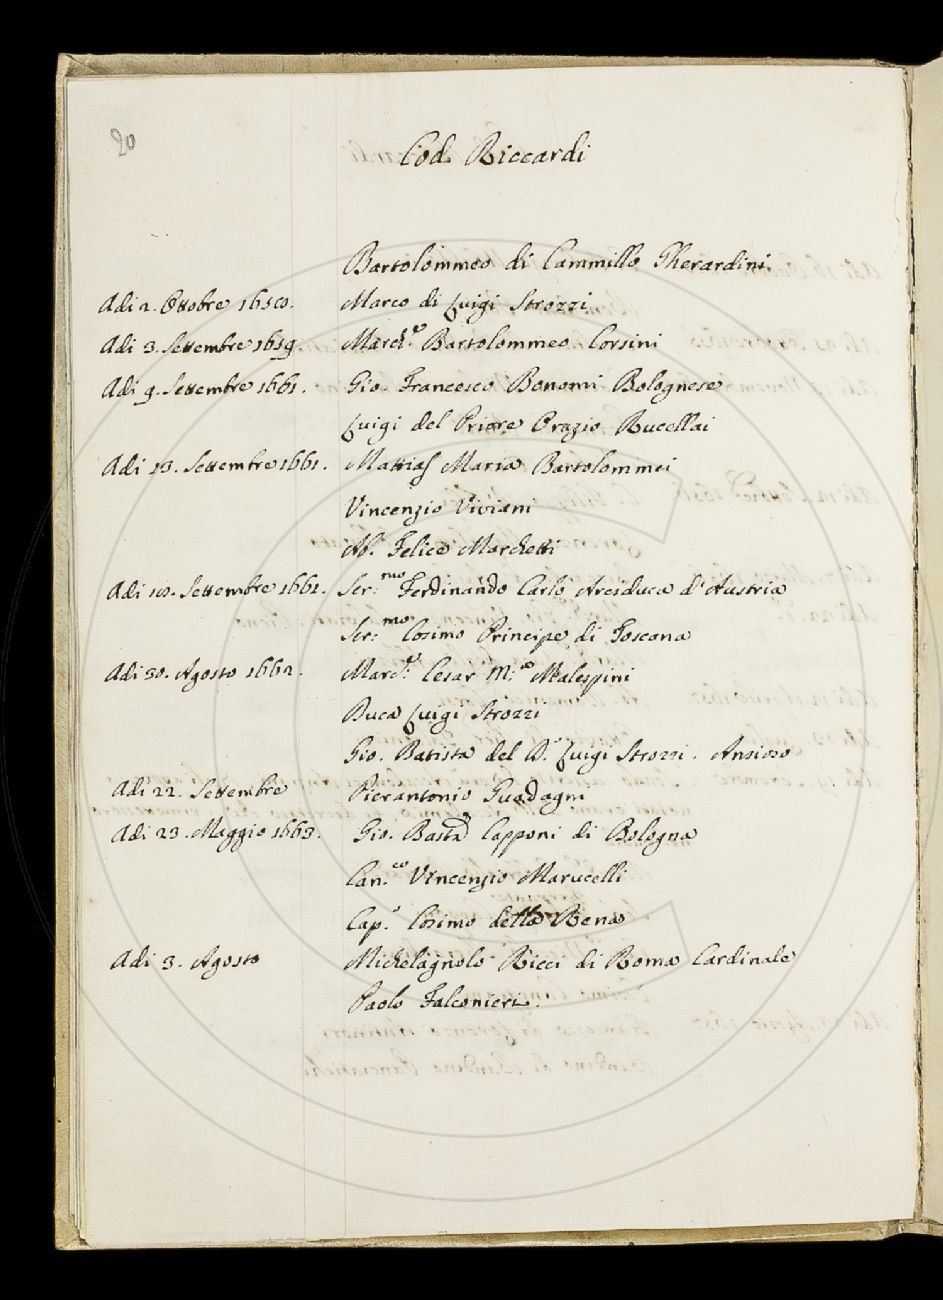 20
Cod. Riccardi
Bartolommeo di Cammillo Gherardini
Adi 2. Ottobre 1650. Marco di Luigi Strozzi
Adi 3. Settembre 1659. March.e Bartolommeo Corsini
Adi 9. Settembre 1661. Gio. Francesco Bonomi Bolognese
Luigi del Priore Orazio Rucellai
Adi 13. Settembre 1661. Mattias Maria Bartolommei
Vincenzio Viviani
Ab. Felice Marchetti
Adi 10. Settembre 1661. Ser.mo Ferdinando Carlo Arciduca d'Austria
Ser.mo Cosimo Principe di Toscana
Adi 30. Agosto 1662. Marc.e Cesar M.a Malespini
Duca Luigi Strozzi
Gio. Batista del D. Luigi Strozzi. Ansioso
Adi 22. Settembre Pierantonio Guadagni
Adi 23. Maggio 1663. Gio. Basta Capponi di Bologna
Can.co Vincenzio Marucelli
Cap. Cosimo della Rena
Adi 3. Agosto Michelagnolo Ricci di Roma Cardinale
Paolo Falconieri.